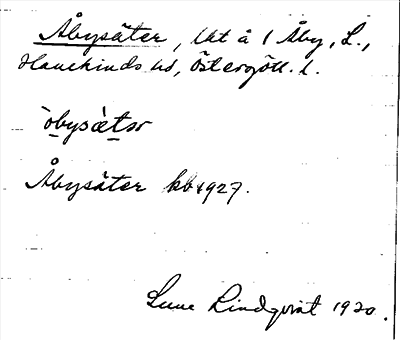 Åbysäter, lht å 1 Åby, L.,
Hanekinds hd, Östergötl. l.
`òbysæ̀tər
Åbysäter kb 1927.
Sune Lindqvist 1920.